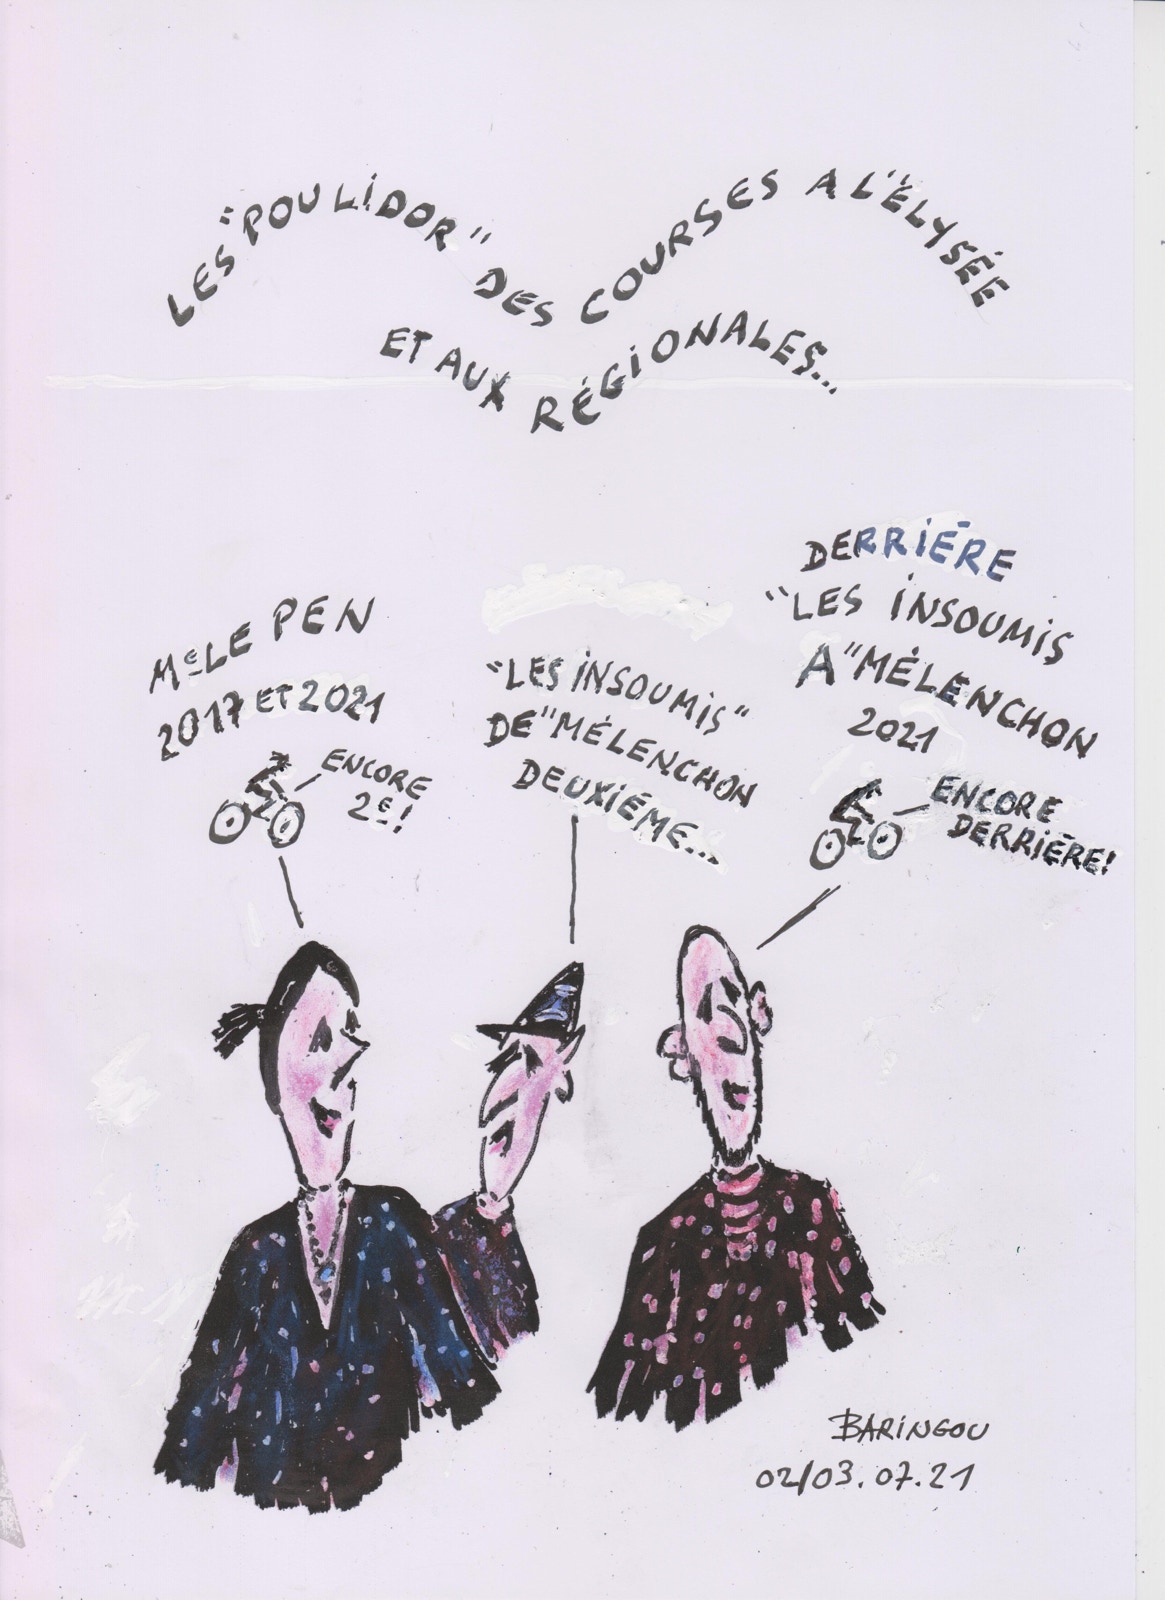 LES "POULIDOR" DES COURSES A L'ÉLYSÉE
ET AUX RÉGIONALES...
Mᵉ LE PEN
2017 ET 2021
ENCORE
2ᵉ!
"LES INSOUMIS"
DE "MÉLENCHON
DEUXIÉME...
DERRIÉRE
"LES INSOUMIS
A" MÉLENCHON
2021
ENCORE
DERRIÉRE!
BARINGOU
02/03.07.21